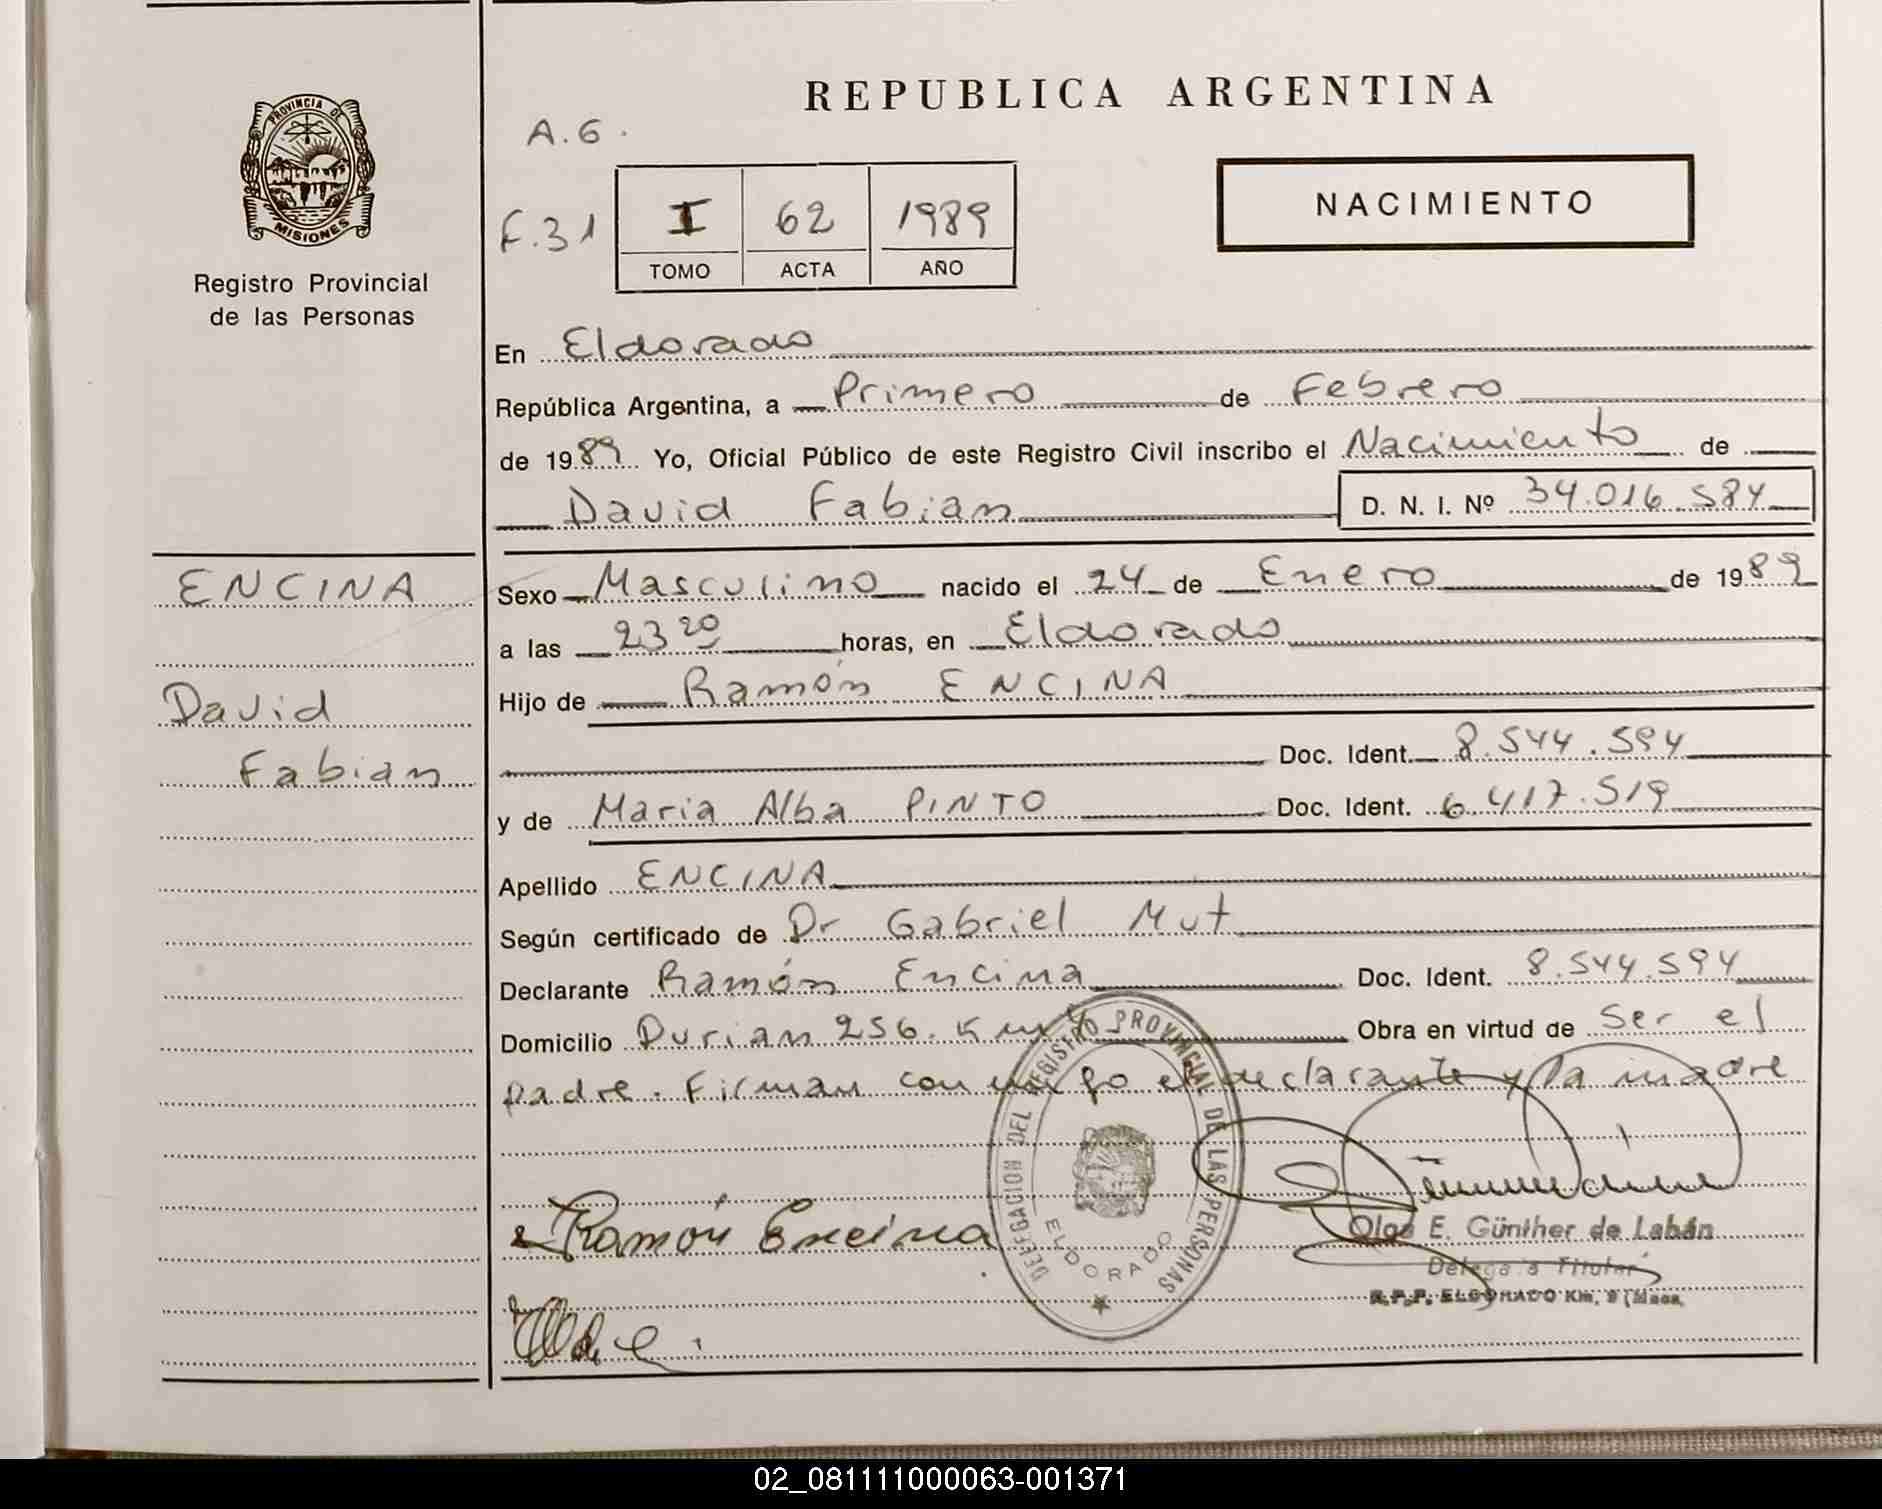 REPUBLICA ARGENTINA
A.G.
PROVINCIA DE
MISIONES
Registro Provincial
de las Personas
F.31
I 62 1989
TOMO ACTA AÑO
NACIMIENTO
En Eldorado
República Argentina, a Primero de Febrero
de 1989 Yo, Oficial Público de este Registro Civil inscribo el Nacimiento de
David Fabian D. N. I. Nº 34.016.584
ENCINA
David
Fabian
Sexo Masculino nacido el 24 de Enero de 1989
a las 23 20 horas, en Eldorado
Hijo de Ramón ENCINA
Doc. Ident. 8.544.594
y de Maria Alba PINTO Doc. Ident. 6.417.519
Apellido ENCINA
Según certificado de Dr Gabriel Mut
Declarante Ramón Encina Doc. Ident. 8.544.594
Domicilio Durian 256. Km Obra en virtud de Ser el
padre. Firman conmigo el declarante y la madre
DELEGACION DEL REGISTRO PROVINCIAL DE LAS PERSONAS
ELDORADO
Ramón Encina
Olga E. Günther de Labán
Delegada Titular
R.P.P. ELDORADO Km. 9 (Mnes.
02_081111000063-001371